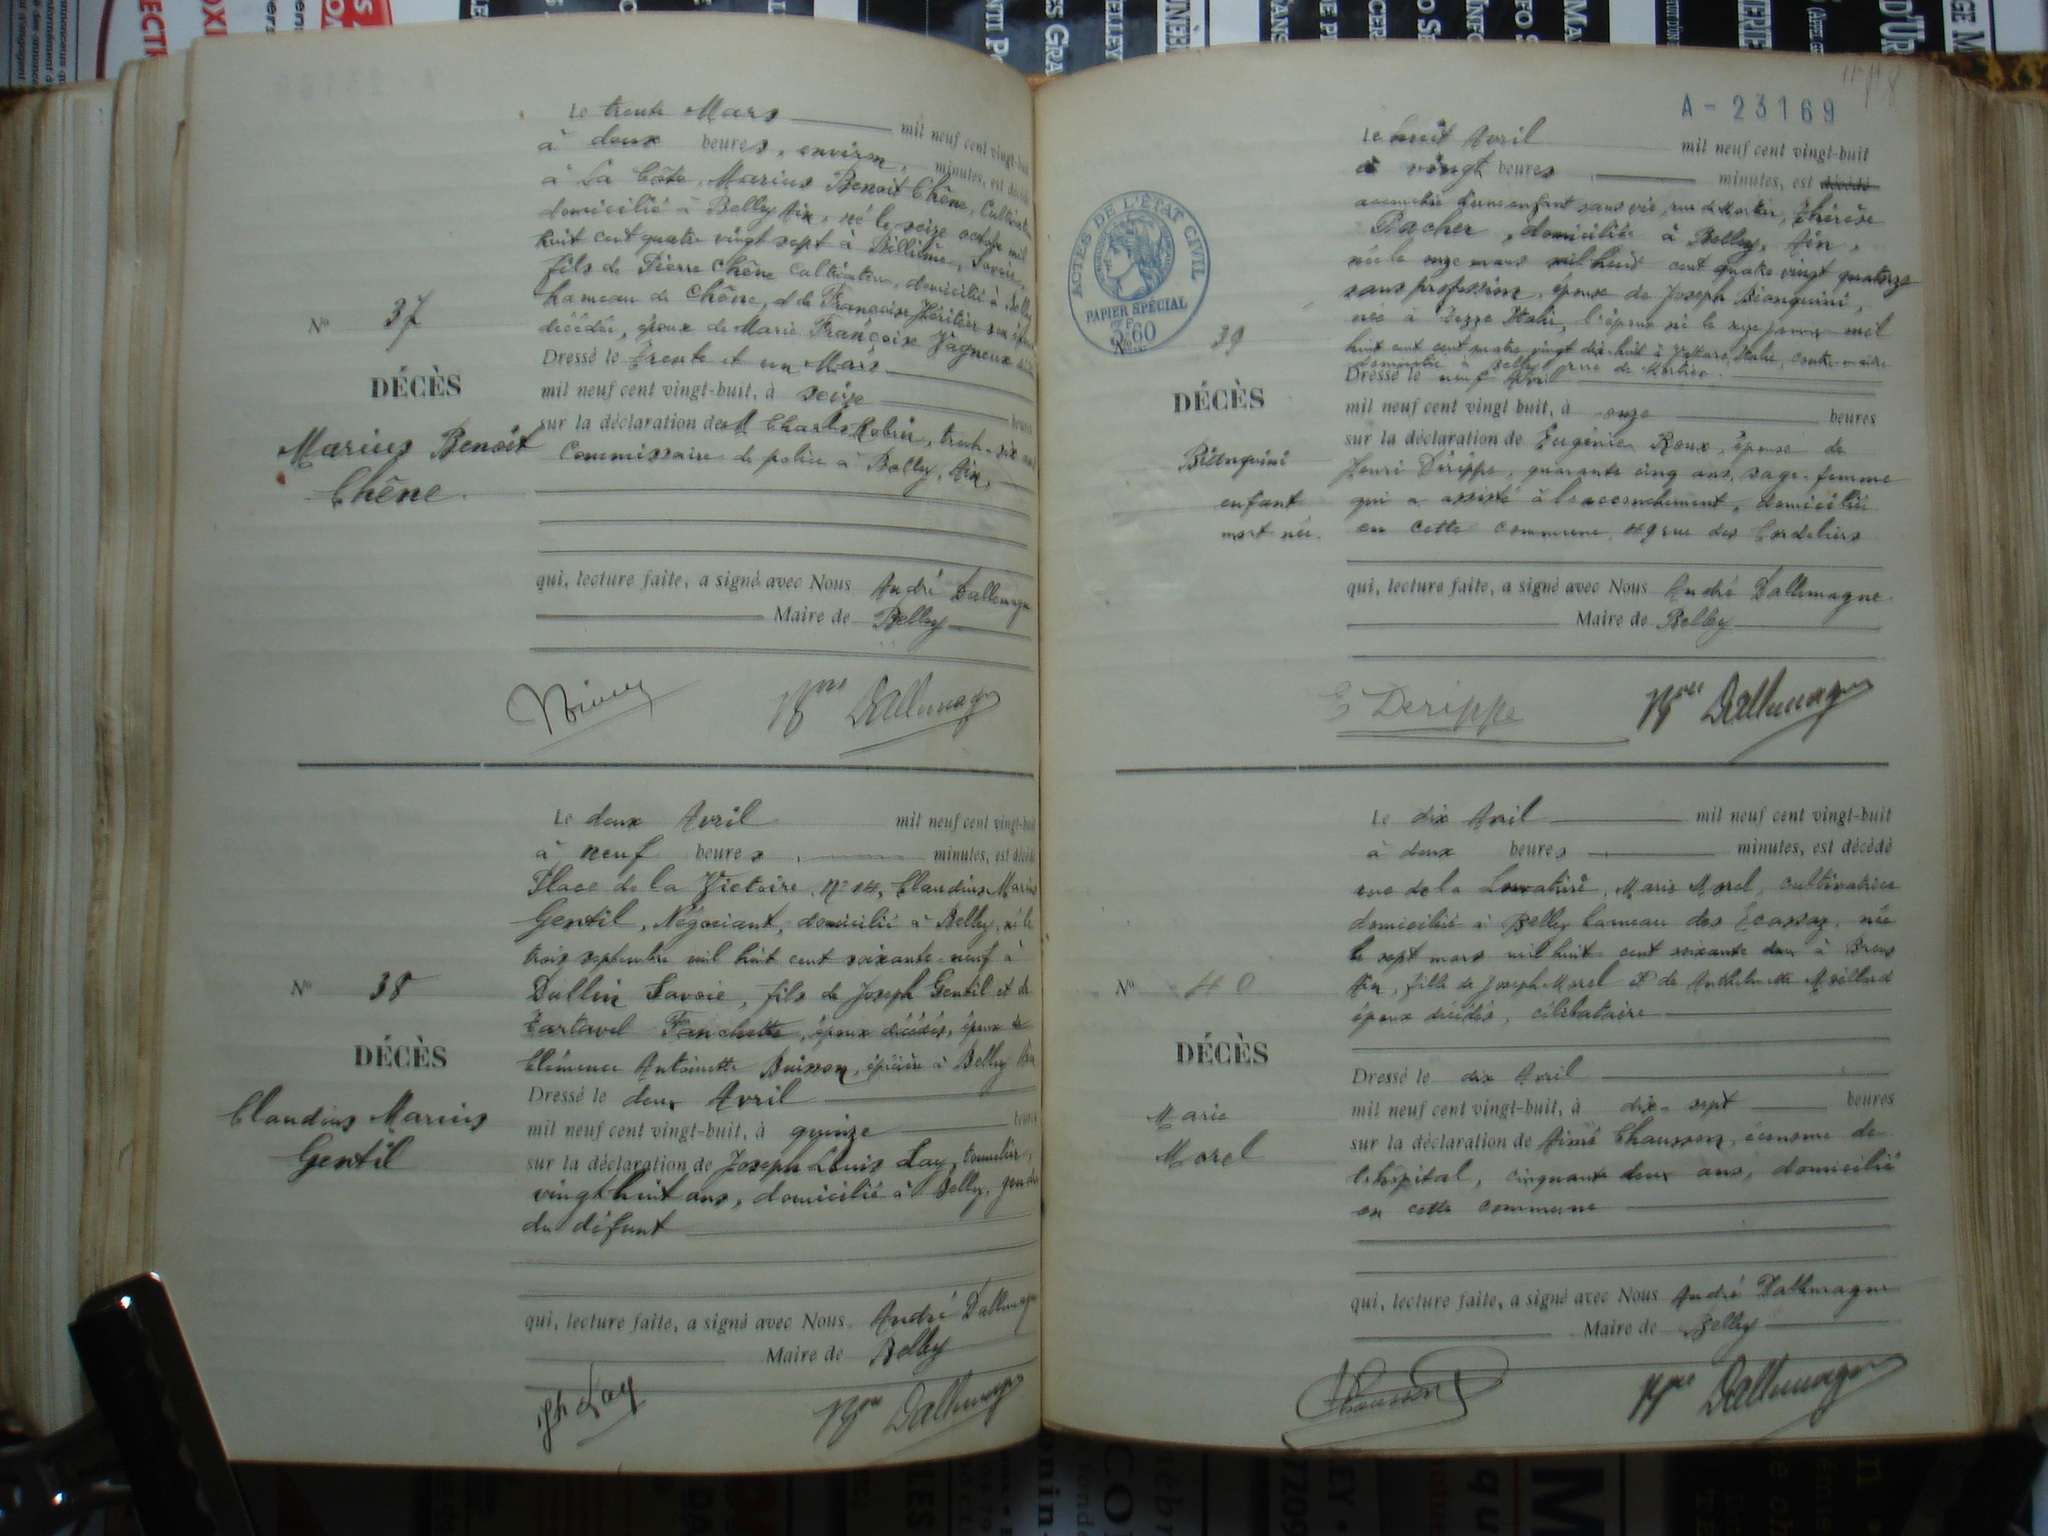 Le trente Mars mil neuf cent vingt-huit
à deux heures, environ, minutes, est décédé
à La Côte, Marius Benoit Chêne, Cultivateur
domicilié à Belley Ain, né le seize octobre mil
huit cent quatre vingt sept à Billième, Savoie,
fils de Pierre Chêne Cultivateur, domicilié à Belley
hameau de Chêne, et de Françoise Héritier son épouse
décédée, époux de Marie Françoise Vagneux
Nº 37
DÉCÈS
Marius Benoit
Chêne
Dressé le trente et un Mars
mil neuf cent vingt-huit, à seize heures
sur la déclaration de Charles trente-six ans
Commissaire de police à Belley, Ain,
qui, lecture faite, a signé avec Nous André Dallemagne
Maire de Belley
Dallemagne
Le deux Avril mil neuf cent vingt-huit
à neuf heures, minutes, est décédé
Place de la Victoire, Nº 14, Claudius Marius
Gentil, Négociant, domicilié à Belley, né le
trois septembre mil huit cent soixante-neuf à
Dullin Savoie, fils de Joseph Gentil et de
Tartavel Fanchette, époux décédés, époux de
Clémence Antoinette Buisson, épicière à Belley Ain
Nº 38
DÉCÈS
Claudius Marius
Gentil
Dressé le deux Avril
mil neuf cent vingt-huit, à quinze heures
sur la déclaration de Joseph Louis Lay, tonnelier,
vingt huit ans, domicilié à Belley, gendre
du défunt
qui, lecture faite, a signé avec Nous André Dallemagne
Maire de Belley
Jph Lay Dallemagne
A-23169
ACTES DE L'ÉTAT CIVIL
PAPIER SPÉCIAL
3F60
Le huit Avril mil neuf cent vingt-huit
à vingt heures, minutes, est décédé
accouchée d'une enfant sans vie, rue de Thérèse
Pacher, domiciliée à Belley, Ain,
née le onze mars mil huit cent quatre vingt quatorze
sans profession, épouse de Joseph Bianquini,
née à Italie, l'époux né le janvier mil
huit cent cent quatre vingt dix-huit à Italie, contre-maître
domicilié à Belley, rue de
Nº 39
DÉCÈS
Bianquini
enfant
mort née.
Dressé le neuf Avril
mil neuf cent vingt huit, à onze heures
sur la déclaration de Eugénie Roux, épouse de
Henri Dérippe, quarante cinq ans, sage-femme
qui a assisté à l'accouchement, domiciliée
en cette commune, 49 rue des Cordeliers
qui, lecture faite, a signé avec Nous André Dallemagne
Maire de Belley
E Derippe Dallemagne
Le dix Avril mil neuf cent vingt-huit
à deux heures minutes, est décédé
rue de la Marie Morel, cultivatrice
domiciliée à Belley hameau des Écassaz, née
le sept mars mil huit cent soixante deux à Brens
Ain, fille de Joseph Morel et de Anthelmette Moillard
époux décédés, célibataire
Nº 40
DÉCÈS
Marie
Morel
Dressé le dix Avril
mil neuf cent vingt-huit, à dix-sept heures
sur la déclaration de Aimé Chausson, économe de
l'hôpital, cinquante deux ans, domicilié
en cette commune
qui, lecture faite, a signé avec Nous André Dallemagne
Maire de Belley
Chausson Dallemagne